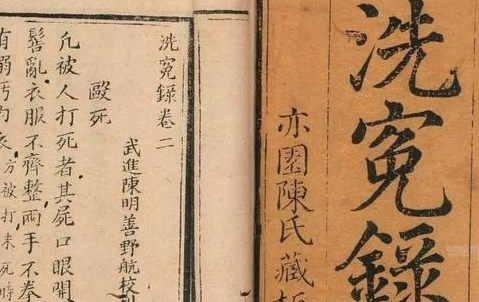 洗冤錄
亦園陳氏藏板
洗冤錄卷二
武進陳明善野航校
毆死
凡被人打死者其屍口眼開
髻亂衣服不齊整兩手不拳